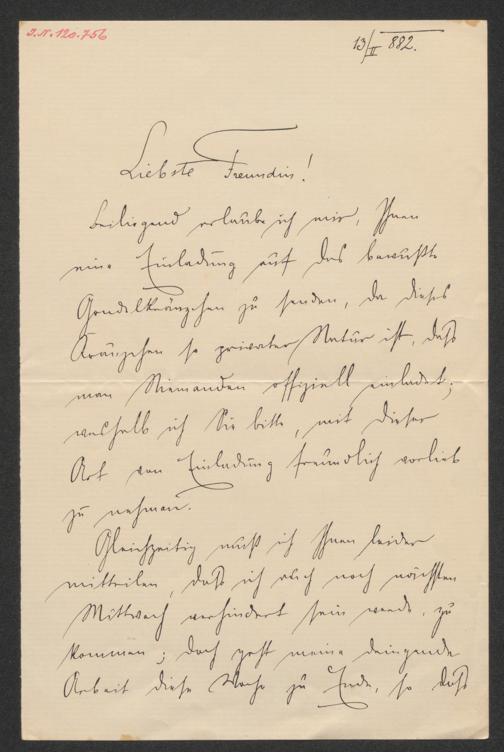 J.N. 120.756
13/II 882.
Liebste Freundin!
Beiliegend erlaube ich mir, Ihnen
eine Einladung auf das bewußte
Gondelkränzchen zu senden, da dieses
Kränzchen so privater Natur ist, daß
man Niemanden offiziell einladet;
weshalb ich Sie bitte, mit dieser
Art von Einladung freundlich vorlieb
zu nehmen.
Gleichzeitig muß ich Ihnen leider
mitteilen, daß ich auch noch nächsten
Mittwoch verhindert sein werde, zu
kommen; doch geht meine dringende
Arbeit diese Woche zu Ende, so daß